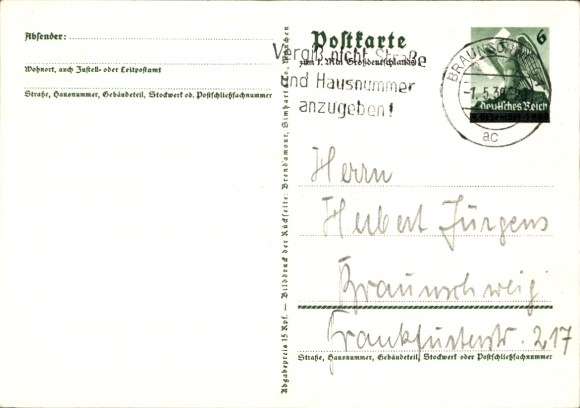 Absender:
Wohnort, auch Zustell- oder Leitpostamt
Straße, Hausnummer, Gebäudeteil, Stockwerk od. Postschließfachnummer
Abgabepreis 15 Rpf. — Bilddruck der Rückseite: Brend'amour, Simhart & Co., München
Postkarte
zum 1. Mai Großdeutschlands
Vergiß nicht Straße
und Hausnummer
anzugeben!
6
Deutsches Reich
BRAUNSCHWEIG
-1.5.39
ac
Herrn
Herbert Jürgens
Braunschweig
Frankfurterstr. 217
Straße, Hausnummer, Gebäudeteil, Stockwerk oder Postschließfachnummer